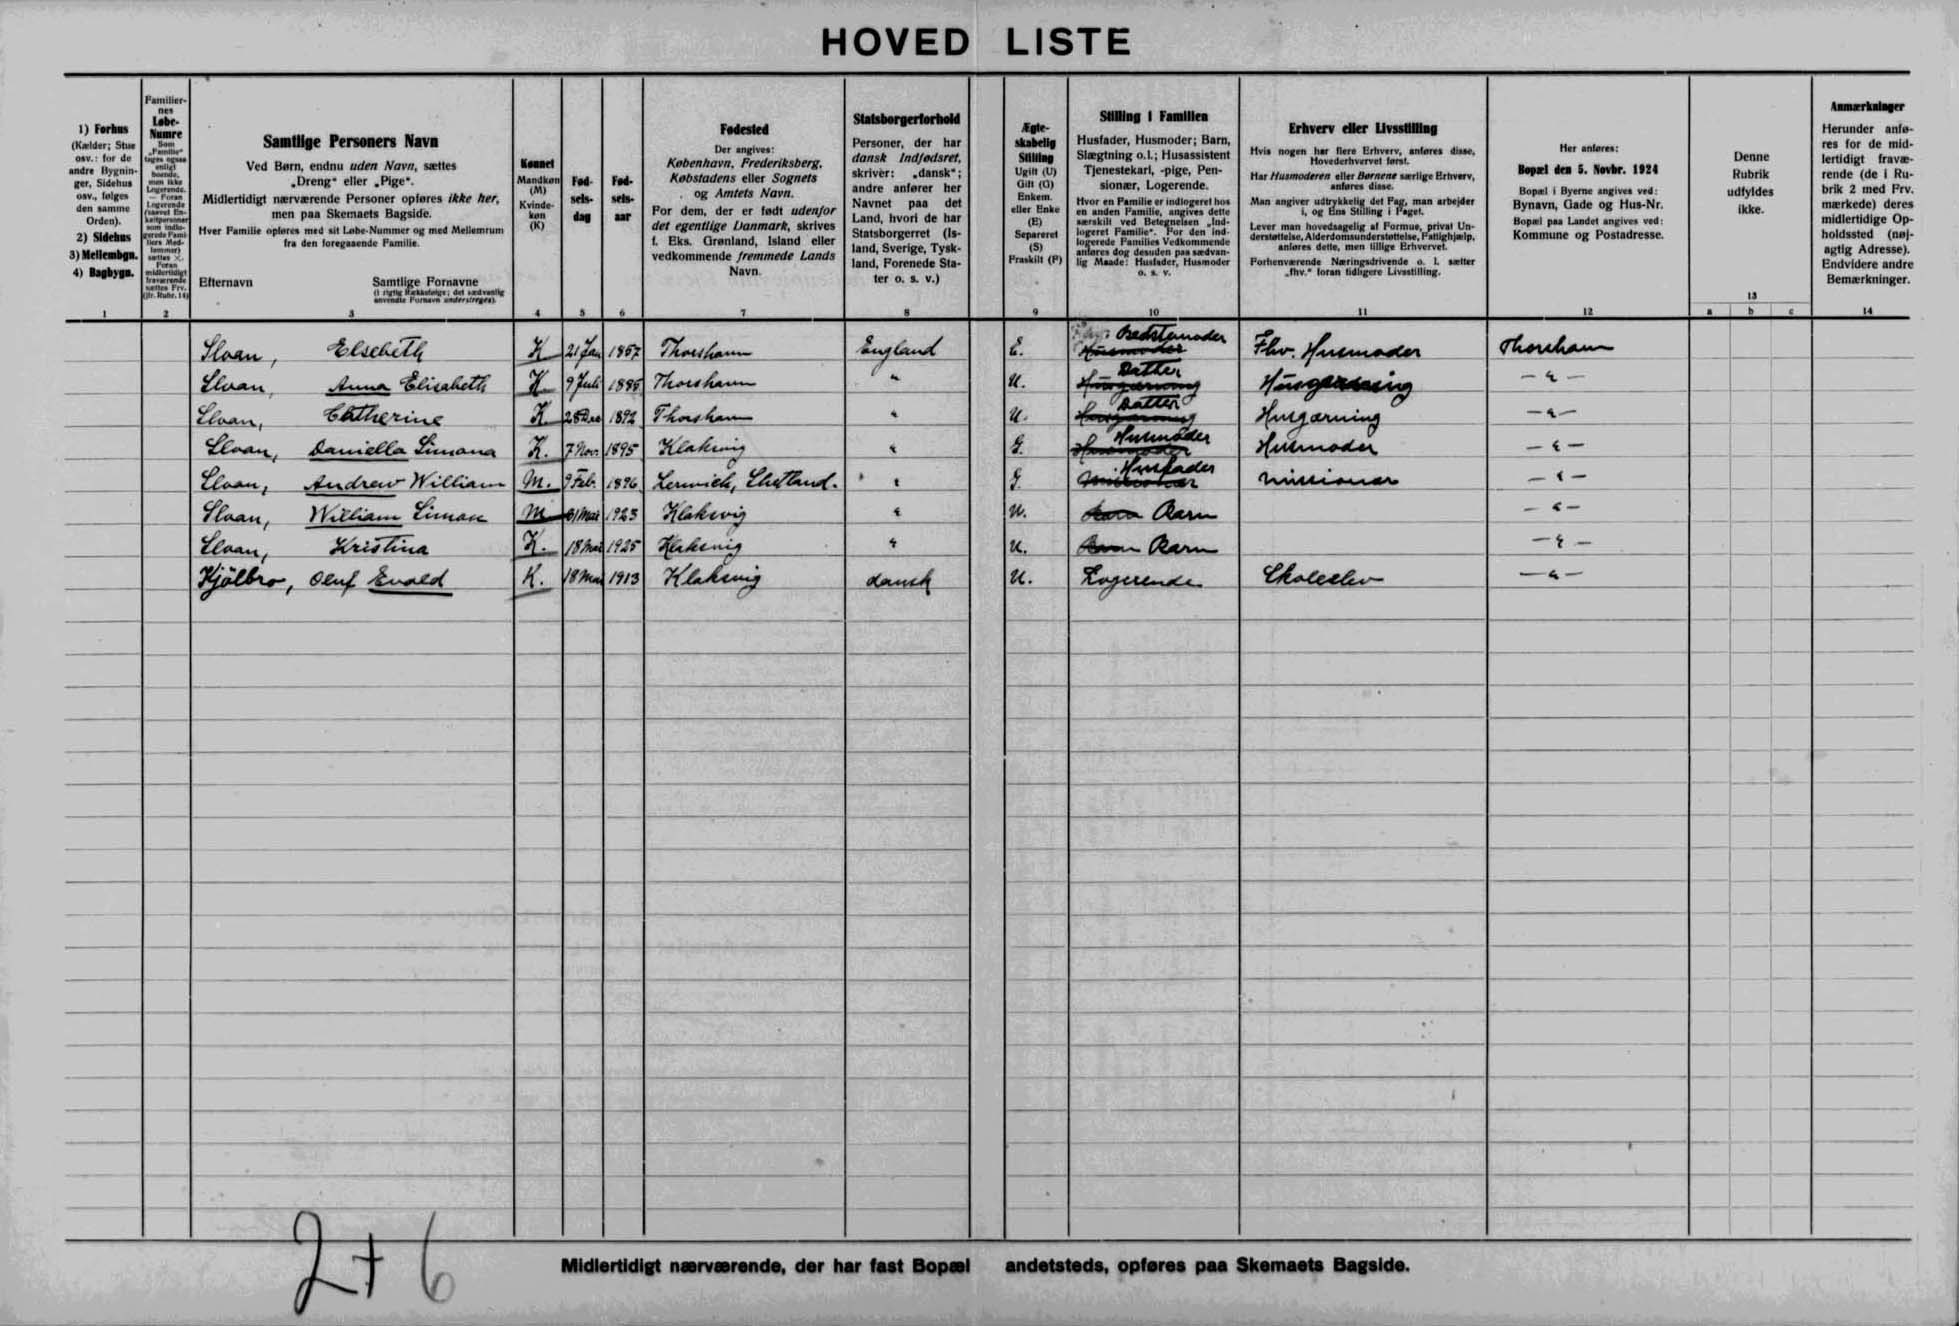 HOVED LISTE
1) Forhus
(Kælder; Stue
osv.: for de
andre Bygnin-
ger, Sidehus
osv., følges
den samme
Orden).
2) Sidehus
3) Mellembgn.
4) Bagbygn.
1
Familier-
nes
Løbe-
Numre
Som
„Familie“
tages ogsaa
enligt
boende,
men ikke
Logerende.
— Foran
Logerende
(saavel En-
keltpersoner
som indlo-
gerede Fami-
liers Med-
lemmer)
sættes X.
Foran
midlertidigt
fraværende
sættes Frv.
(jfr. Rubr. 14)
2
Samtlige Personers Navn
Ved Børn, endnu uden Navn, sættes
„Dreng“ eller „Pige“.
Midlertidigt nærværende Personer opføres ikke her,
men paa Skemaets Bagside.
Hver Familie opføres med sit Løbe-Nummer og med Mellemrum
fra den foregaaende Familie.
Efternavn Samtlige Fornavne
(i rigtig Rækkefølge; det sædvanlig
anvendte Fornavn understreges).
3
Kønnet
Mandkøn
(M)
Kvinde-
køn
(K)
4
Fød-
sels-
dag
5
Fød-
sels-
aar
6
Fødested
Der angives:
København, Frederiksberg,
Købstadens eller Sognets
og Amtets Navn.
For dem, der er født udenfor
det egentlige Danmark, skrives
f. Eks. Grønland, Island eller
vedkommende fremmede Lands
Navn.
7
Statsborgerforhold
Personer, der har
dansk Indfødsret,
skriver: „dansk“;
andre anfører her
Navnet paa det
Land, hvori de har
Statsborgerret (Is-
land, Sverige, Tysk-
land, Forenede Sta-
ter o. s. v.)
8
Ægte-
skabelig
Stilling
Ugift (U)
Gift (G)
Enkem.
eller Enke
(E)
Separeret
(S)
Fraskilt (F)
9
Stilling i Familien
Husfader, Husmoder; Barn,
Slægtning o.l.; Husassistent
Tjenestekarl, -pige, Pen-
sionær, Logerende.
Hvor en Familie er indlogeret hos
en anden Familie, angives dette
særskilt ved Betegnelsen „Ind-
logeret Familie“. For den ind-
logerede Families Vedkommende
anføres dog desuden paa sædvan-
lig Maade: Husfader, Husmoder
o. s. v.
10
Erhverv eller Livsstilling
Hvis nogen har flere Erhverv, anføres disse,
Hovederhvervet først.
Har Husmoderen eller Børnene særlige Erhverv,
anføres disse.
Man angiver udtrykkelig det Fag, man arbejder
i, og Ens Stilling i Faget.
Lever man hovedsagelig af Formue, privat Un-
derstøttelse, Alderdomsunderstøttelse, Fattighjælp,
anføres dette, men tillige Erhvervet.
Forhenværende Næringsdrivende o. l. sætter
„fhv.“ foran tidligere Livsstilling.
11
Her anføres:
Bopæl den 5. Novbr. 1924
Bopæl i Byerne angives ved:
Bynavn, Gade og Hus-Nr.
Bopæl paa Landet angives ved:
Kommune og Postadresse.
12
Denne
Rubrik
udfyldes
ikke.
13
a b c
Anmærkninger
Herunder anfø-
res for de mid-
lertidigt fravæ-
rende (de i Ru-
brik 2 med Frv.
mærkede) deres
midlertidige Op-
holdssted (nøj-
agtig Adresse).
Endvidere andre
Bemærkninger.
14
Sloan, Elsebeth K 21 Jan 1857 Thorshavn England E. Bedstemoder Husmoder Fhv. Husmoder Thorshavn
Sloan, Anna Elisabeth K. 9 Juli 1885 Thorshavn " U. Datter Husgærning Husgærning — " —
Sloan, Catherine K. 28 Dec 1892 Thorshavn " U. Datter Husgærning Husgærning — " —
Sloan, Daniella Simona K. 7 Nov. 1895 Klaksvig " G. Husmoder Husmoder Husmoder — " —
Sloan, Andrew William M. 9 Feb. 1896 Lerwick, Shetland. " G. Husfader Missionær Missionær — " —
Sloan, William Simon M 31 Mai 1923 Klaksvig " U. Barn Barn — " —
Sloan, Kristina K. 18 Mai 1925 Klaksvig " U. Barn Barn — " —
Kjölbro, Oluf Evald K. 18 Mai 1913 Klaksvig dansk U. Logerende Skoleelev — " —
2+6
Midlertidigt nærværende, der har fast Bopæl andetsteds, opføres paa Skemaets Bagside.